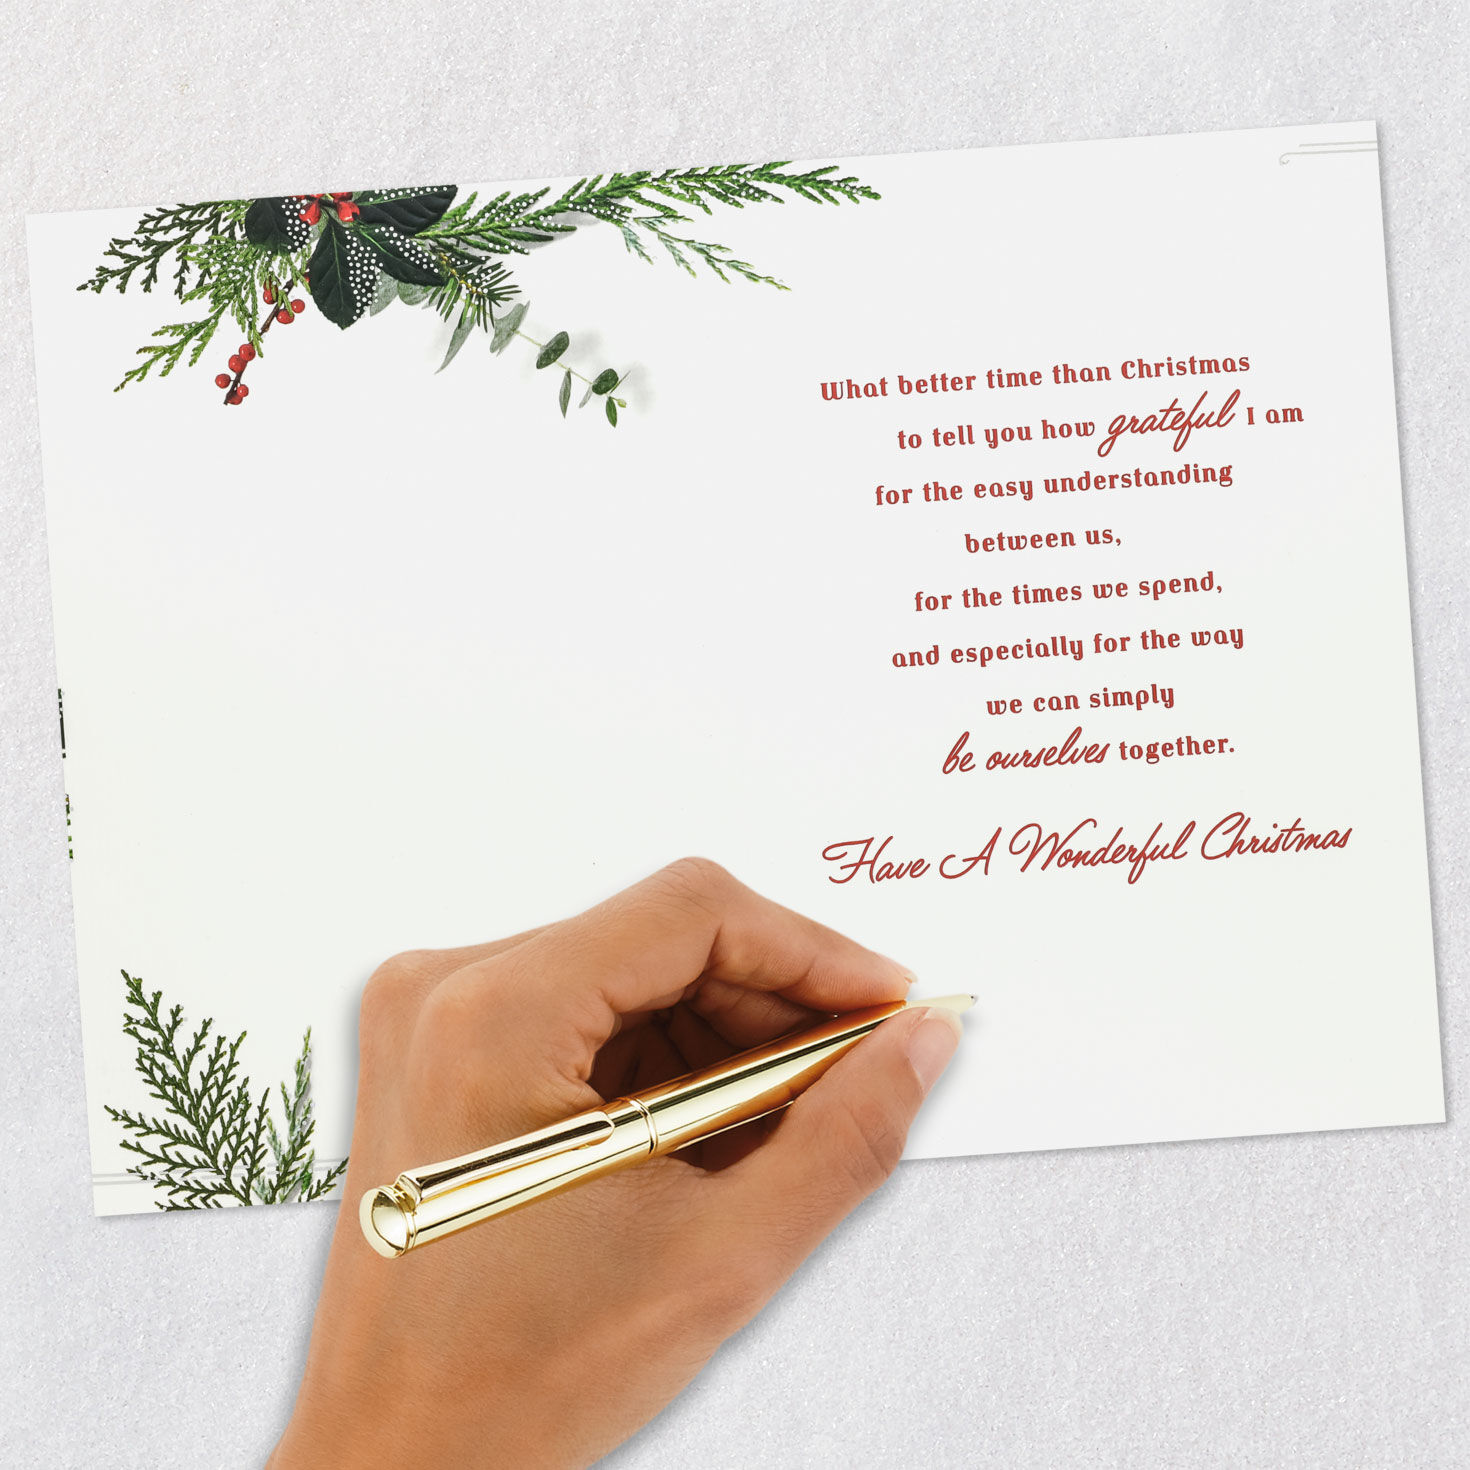 What better time than Christmas
to tell you how grateful I am
for the easy understanding
between us,
for the times we spend,
and especially for the way
we can simply
be ourselves together.
Have A Wonderful Christmas